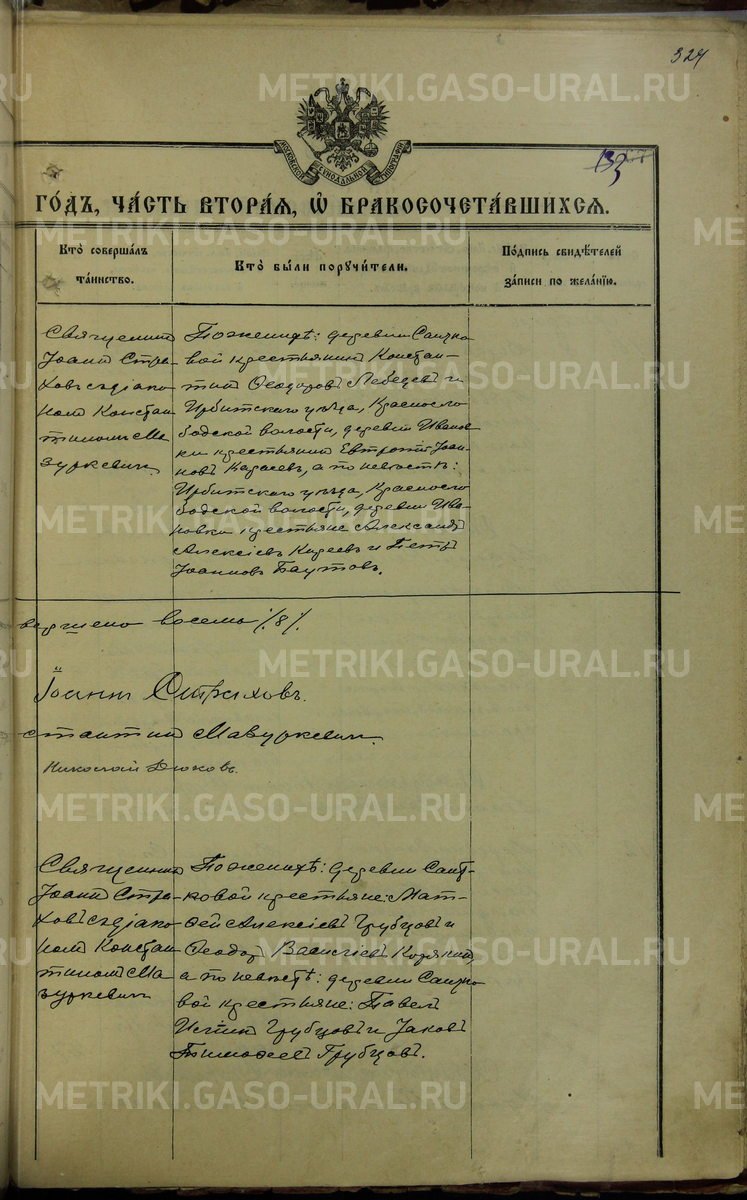 324
МОСКОВСКОЙ СѴНОДАЛЬНОЙ ТИПОГРАФІИ
133
ГО́ДЪ, ЧА́СТЬ ВТОРА́Я, Ѡ҆ БРАКОСОЧЕТА́ВШИХСЯ.
Кто̀ соверша́лъ та́инство.
Кто̀ бы́ли поручи́тели.
По́дпись свидѣ́телей за́писи по жела́нію.
Священникъ
Іоаннъ Стра-
ховъ съ діако-
номъ Констан
тиномъ Ма
зуркевичъ
По женихѣ: деревни
вой крестьянинъ Констан-
тинъ Ѳеодоровъ Лебедевъ и
Ирбитскаго уѣзда, Краснослo
бодской волости, деревни Иванов
ки крестьянинъ Евтропій Іоан-
новъ, а по невѣстѣ:
Ирбитскаго уѣзда, Краснослo
бодской волости, деревни Ива-
новки крестьяне Александръ
Алексіевъ и Петръ
Іоанновъ Баутовъ.
вершено восемь /8/.
Іоаннъ Страховъ.
стантинъ Мазуркевичъ.
Николай Дюковъ.
Священникъ
Іоаннъ Стра-
ховъ съ діако-
номъ Констан
тиномъ Ма
зуркевичъ
По женихѣ: деревни
ковой крестьяне: Мат-
ѳей Алексіевъ Грубцовъ и
Ѳеодоръ Василіевъ Корякинъ
а по невѣстѣ: деревни
вой крестьяне: Павелъ
Грубцовъ и Іаковъ
Тимоѳеевъ Грубцовъ.
METRIKI.GASO-URAL.RU